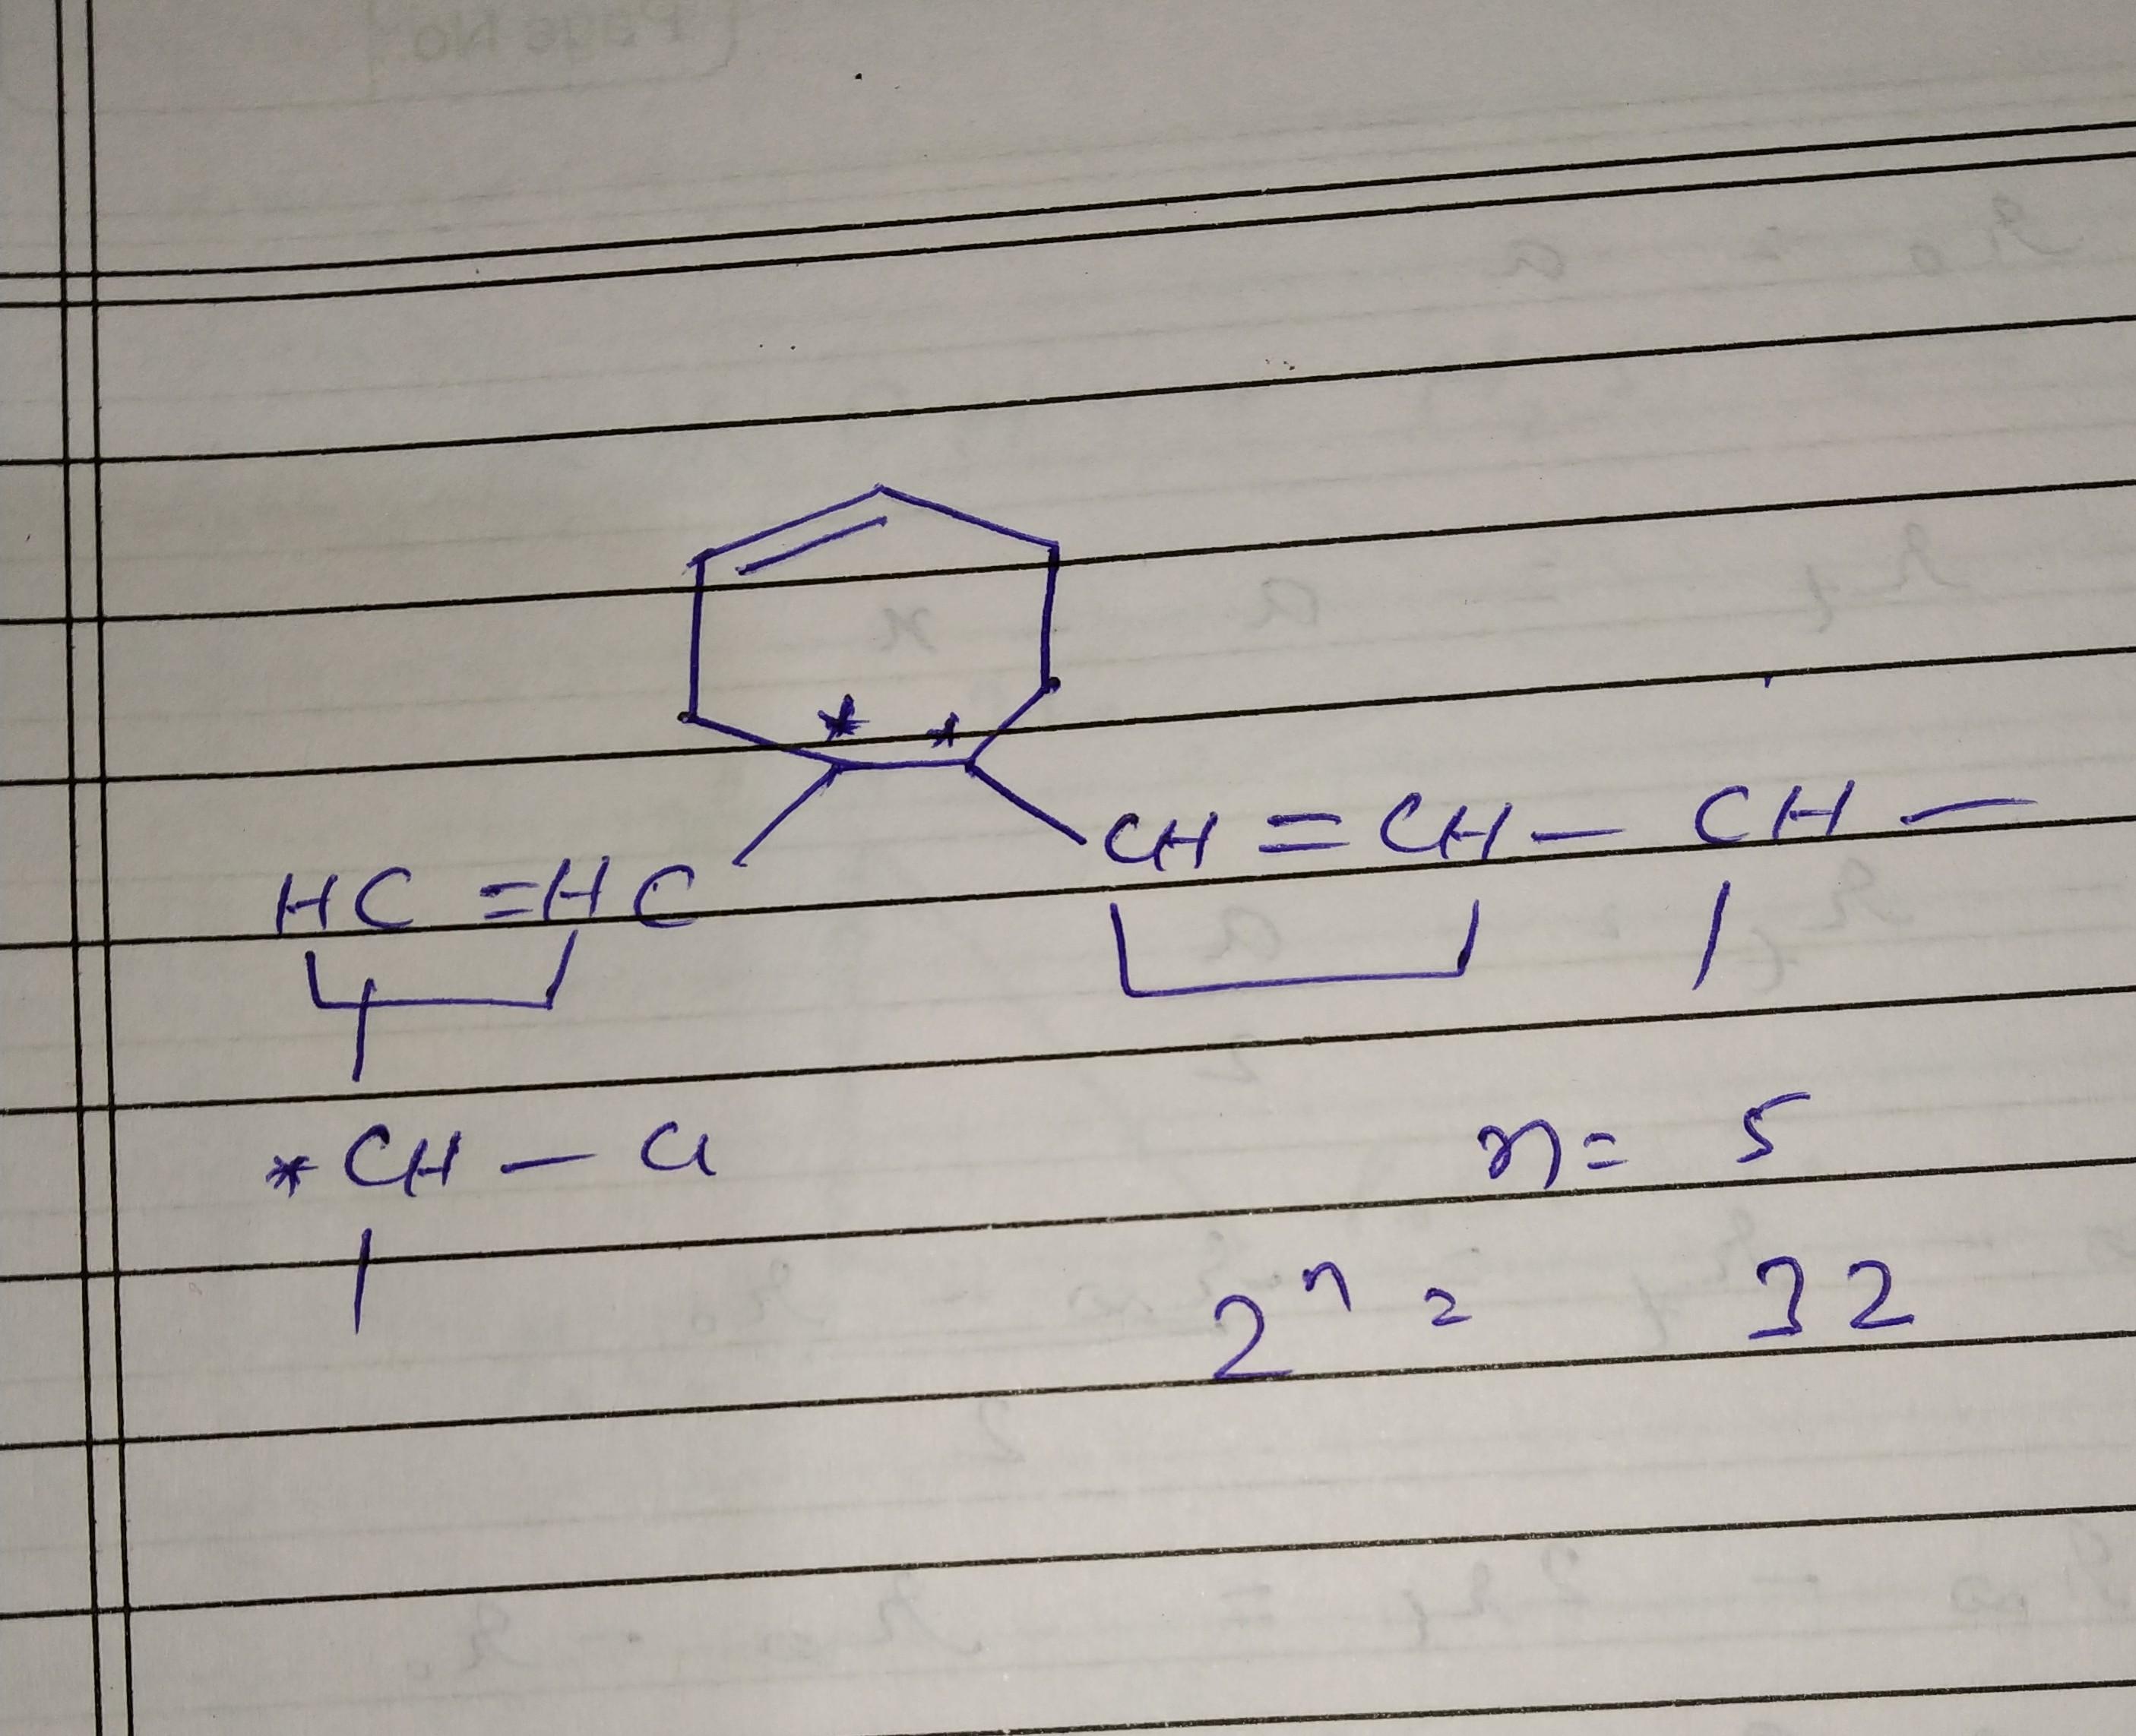 * *
HC = HC CH = CH — CH —
* CH — Cl
n = 5
2ⁿ = 32